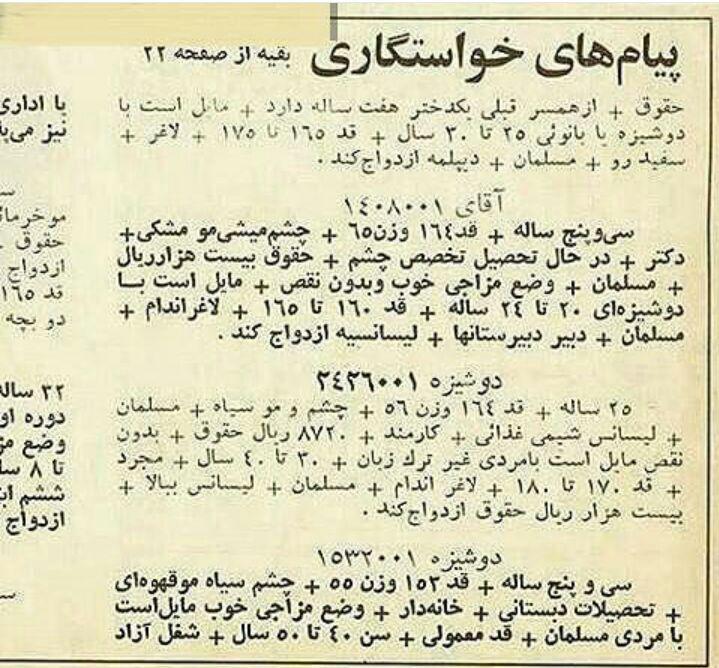 پیام‌های خواستگاری
بقیه از صفحه ۲۲
حقوق + ازهمسر قبلی یکدختر هفت ساله دارد + مایل است با
دوشیزه یا بانوئی ۲۵ تا ۳۰ سال + قد ۱٦۵ تا ۱۷۵ + لاغر +
سفید رو + مسلمان + دیپلمه ازدواج‌کند .
آقای ۱٤۰۸۰۰۱
سی‌وپنج ساله + قد۱٦٤ وزن٦۵ + چشم‌میشی‌مو مشکی+
دکتر + در حال تحصیل تخصص چشم + حقوق بیست هزارریال
+ مسلمان + وضع مزاجی خوب وبدون نقص + مایل است بــا
دوشیزه‌ای ۲۰ تا ۲٤ ساله + قد ۱٦۰ تا ۱٦۵ + لاغراندام +
مسلمان + دبیر دبیرستانها + لیسانسیه ازدواج کند .
دوشیزه ۲٤۲٦۰۰۱
۲۵ ساله + قد ۱٦٤ وزن ۵٦ + چشم و مو سیاه + مسلمان
+ لیسانس شیمی غذائی + کارمند + ۸۷۲۰ ریال حقوق + بدون
نقص مایل است بامردی غیر ترك زبان + ۳۰ تا ٤۰ سال + مجرد
+ قد ۱۷۰ تا ۱۸۰ + لاغر اندام + مسلمان + لیسانس ببالا +
بیست هزار ریال حقوق ازدواج‌کند .
دوشیزه ۱۵۳۲۰۰۱
سی و پنج ساله + قد ۱۵۳ وزن ۵۵ + چشم سیاه موقهوه‌ای
+ تحصیلات دبستانی + خانه‌دار + وضع مزاجی خوب مایل‌است
با مردی مسلمان + قد معمولی + سن ٤۰ تا ۵۰ سال + شغل آزاد
با اداری
نیز می‌پذ
موخرما
حقوق
ازدواج
قد ۱٦۵
دو بچه
۳۲ ساله
دوره او
وضع مز
تا ۸ سا
ششم ابت
ازدواج